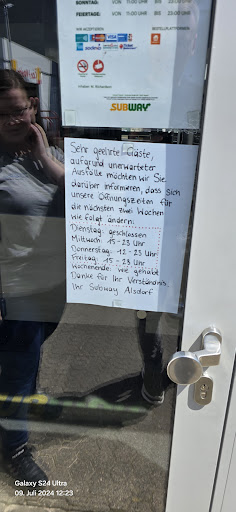 SONNTAG: VON 11:00 UHR BIS 23:00 UHR
FEIERTAGE: VON 11:00 UHR BIS 23:00 UHR
SUBWAY
Sehr geehrte Gäste,
aufgrund unerwarteter
Ausfälle möchten wir Sie
darüber informieren, dass sich
unsere Öffnungszeiten für
die nächsten zwei Wochen
wie folgt ändern:
Dienstag: geschlossen
Mittwoch: 15 - 23 Uhr
Donnerstag: 12 - 23 Uhr
Freitag: 15 - 23 Uhr
Wochenende: wie gehabt
Danke für Ihr Verständnis.
Ihr Subway Alsdorf
Galaxy S24 Ultra
09. Juli 2024 12:23